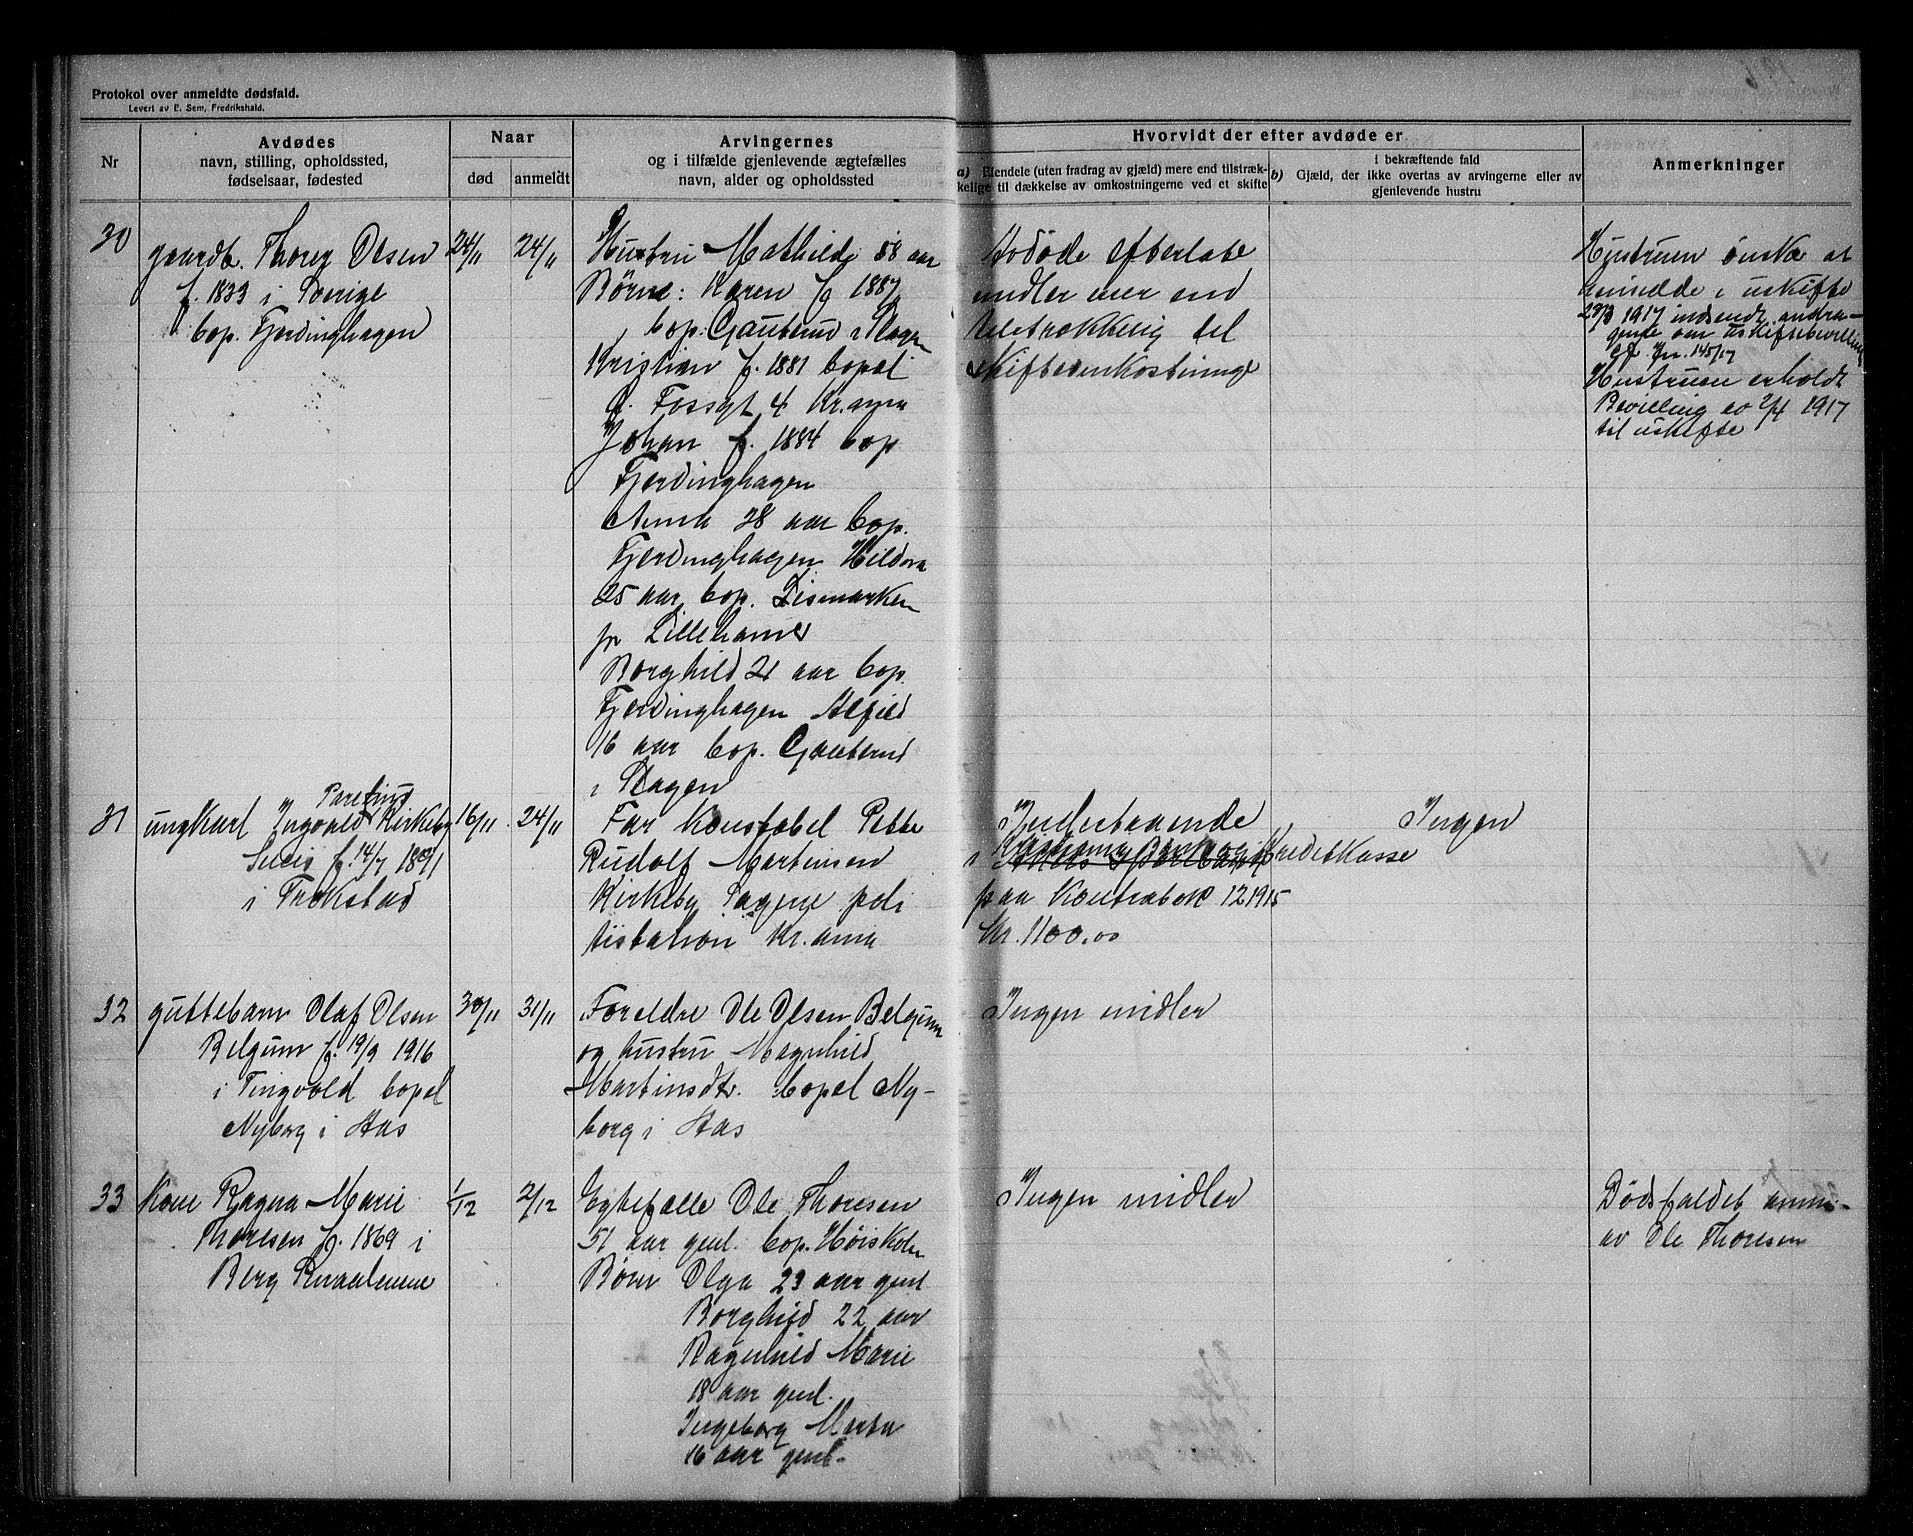 Protokol over anmeldte dødsfald.
Levert av E. Sem, Fredrikshald.
Nr
Avdødes
navn, stilling, opholdssted,
fødselsaar, fødested
Naar
død
anmeldt
Arvingernes
og i tilfælde gjenlevende ægtefælles
navn, alder og opholdssted
Hvorvidt der efter avdøde er
a) Eiendele (uten fradrag av gjæld) mere end tilstræk-
kelige til dækkelse av omkostningerne ved et skifte
i bekræftende fald
b) Gjæld, der ikke overtas av arvingerne eller av
gjenlevende hustru
Anmerkninger
30
gaardb. Thorer Olsen
f. 1833 i Sverige
bop. Fjerdinghagen
24/11
24/11
Hustru Mathilde 58 aar
Børn: Karen f 1887
bop. Gauterud i Skagen
Kristian f. 1881 bopæl
Fossgt 4 Kr.ania
Johan f. 1884 bop
Fjerdinghagen
Anna 28 aar bop.
Fjerdinghagen Hildora
25 aar bop. Dismarken
pr Lillehamer
Borghild 21 aar bop.
Fjerdinghagen Alfild
16 aar bop. Gauterud
i Skagen
Avdøde efterlate
midler mer end
tilstrækkelig til
skifteomkostninge
Hustruen ønsker at
hensidde i uskifte
29/3 1917 indsendt andra-
gende om uskiftebevilling
cf. Jnr. 145/17
Hustruen erholdt
Bevilling av 2/4 1917
til uskifte
31
ungkarl Ingvald Kirkeby
f. 14/7 1891
i Trøkstad
16/11
24/11
Far Konstabel Peter
Rudolf Martinsen
Kirkeby Sagene poli
tistation Kr.ania
Indestaaende
i Kristiania Bank og Kreditkasse
paa Kontrabok 121915
kr. 1100.00
Ingen
32
guttebarn Olaf Olsen
Belgum f. 19/9 1916
i Tingvold bopel
Nyborg i Aas
30/11
31/11
Foreldre Ole Olsen Belgum
og hustru Magnhild
Martinsdtr. bopel Ny-
borg i Aas
Ingen midler
33
Kone Ragna Marie
Thoresen f. 1869 i
Berg Smaalenene
1/12
2/12
Egtefælle Ole Thoresen
51 aar gml. bop. Høiskolen
Børn Olga 23 aar gml
Borghild 22 aar
Ragnhild Marie
18 aar gml.
Ingeborg Marta
16 aar gml.
Ingen midler
Dødsfaldet anm-
av Ole Thoresen